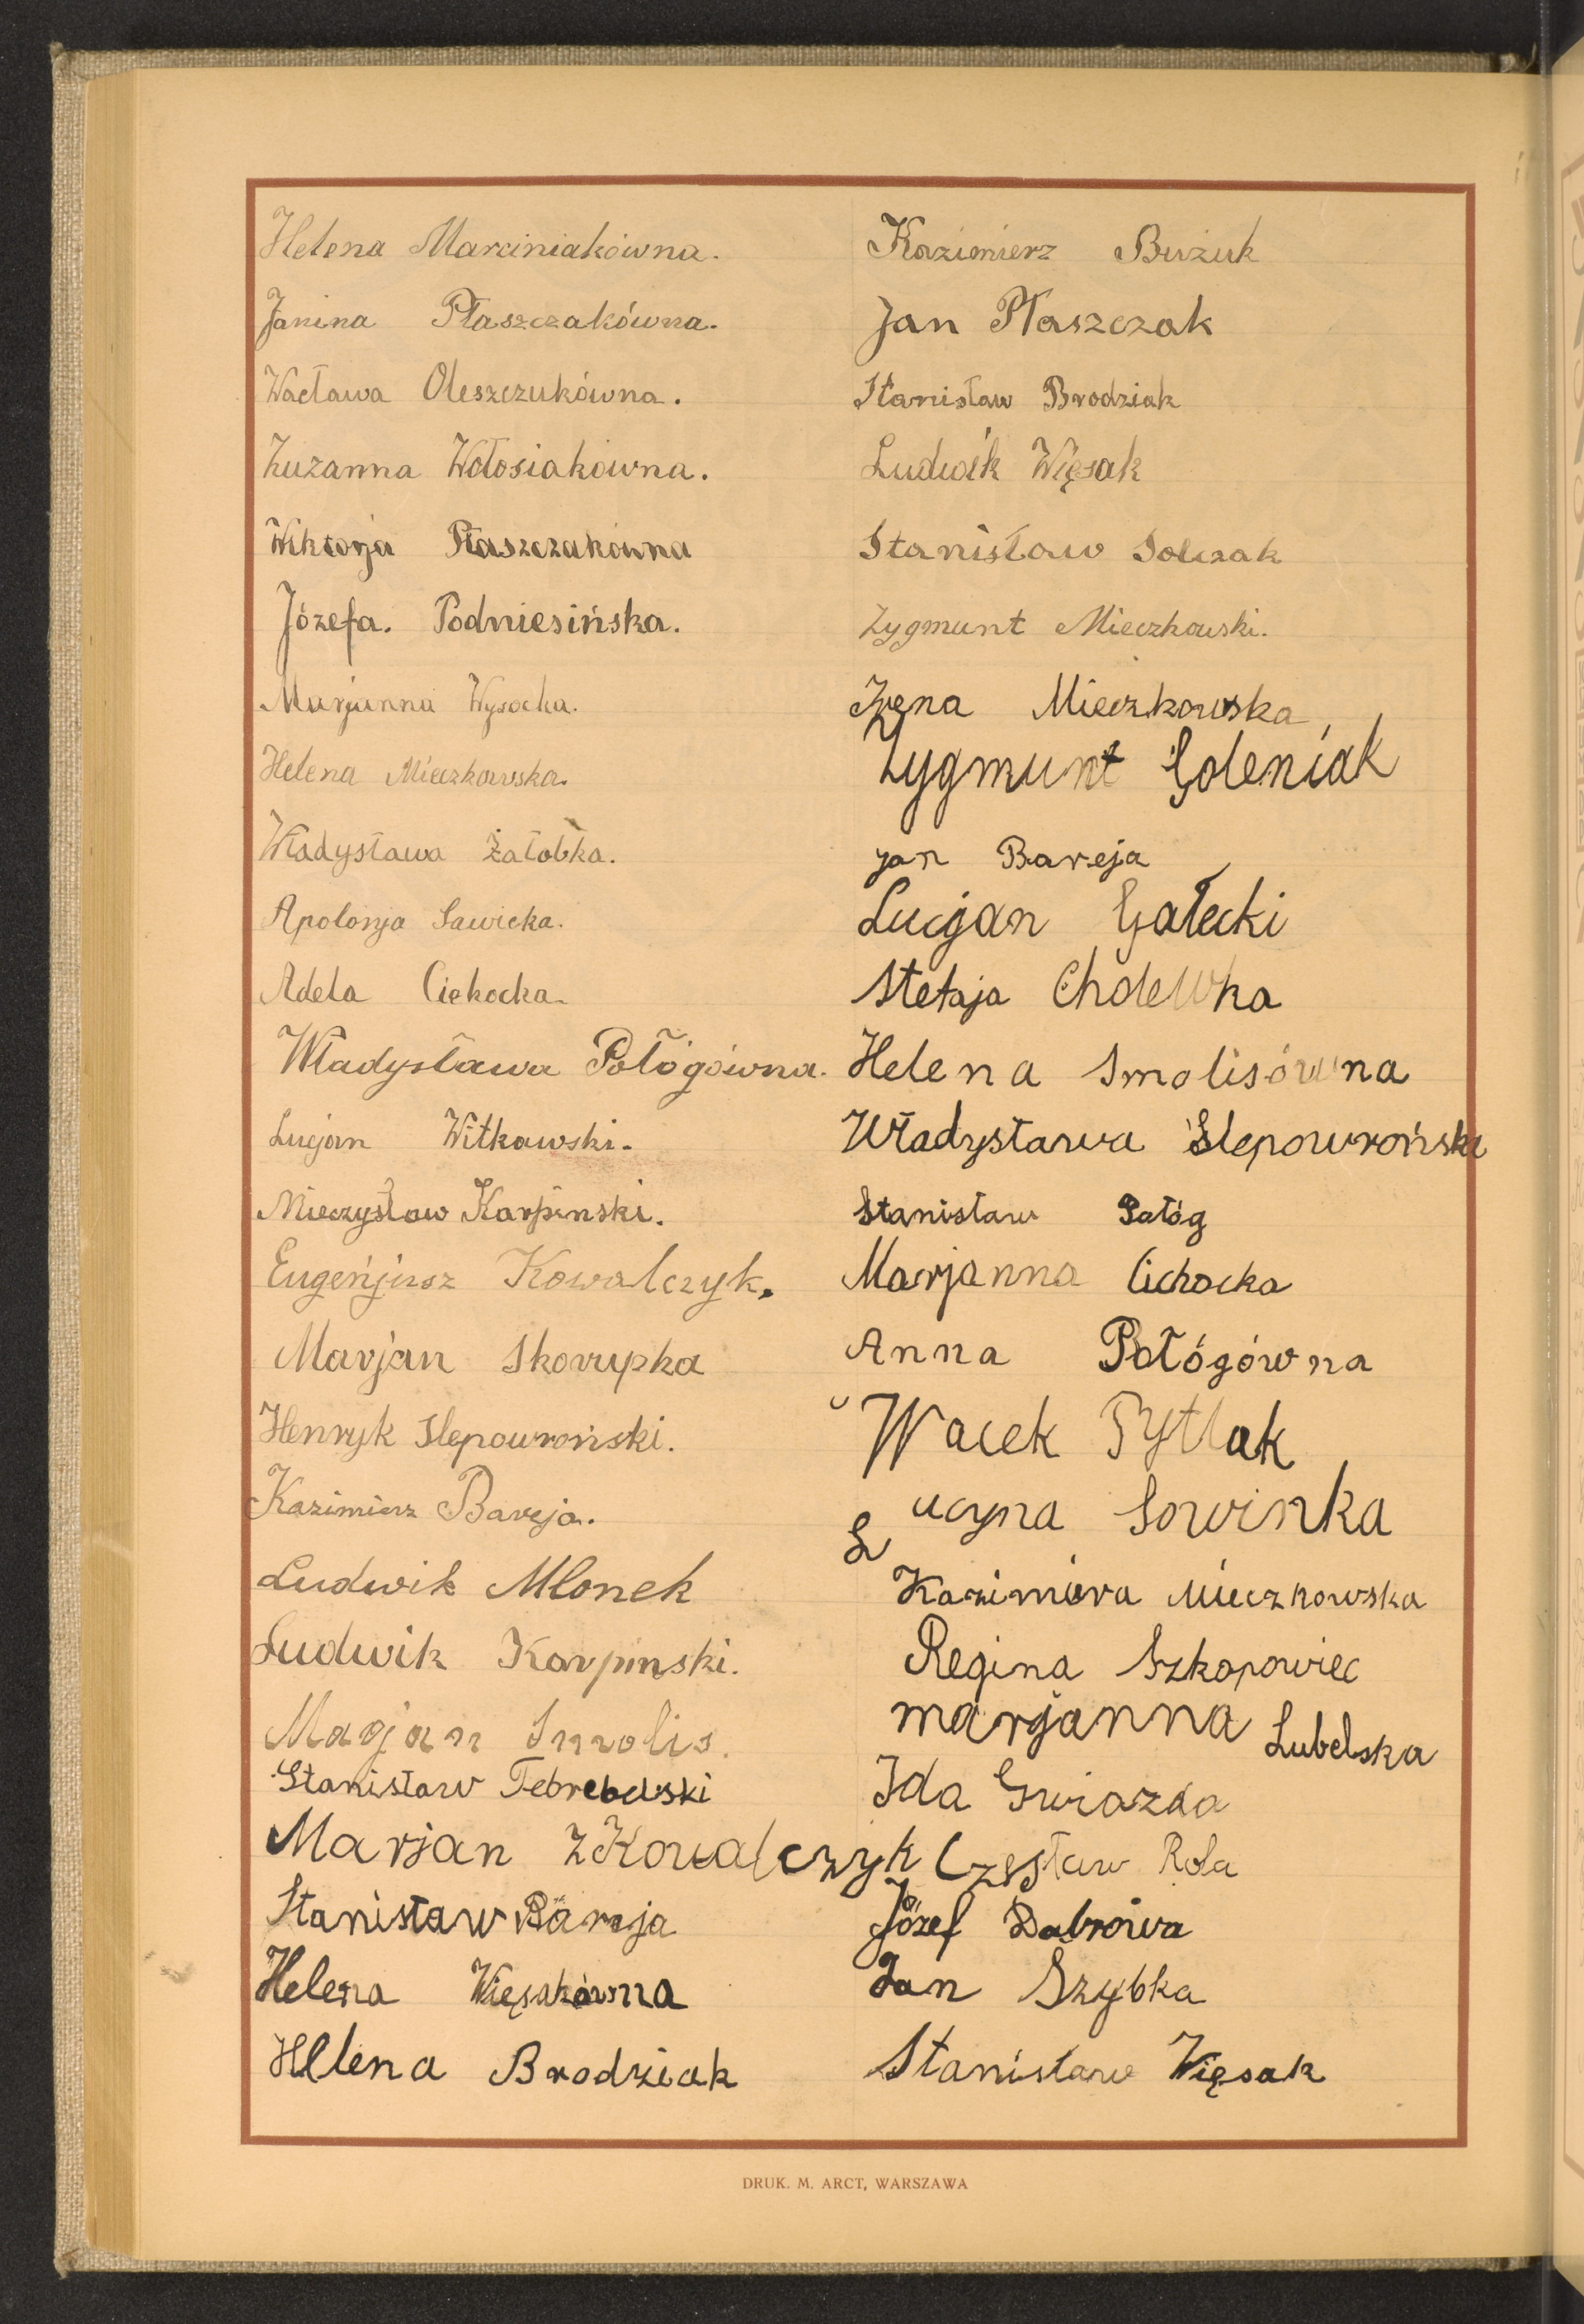 Helena Marciniakówna.
Janina Płaszczakówna.
Wacława Oleszczukówna.
Zuzanna Wołosiakówna.
Wiktorja Płaszczakówna
Józefa. Podniesińska.
Marjanna Wysocka.
Helena Mieczkowska.
Władysława Żałobka.
Apolonja Sawicka.
Adela Ciekocka.
Władysława Połógówna.
Lucjan Witkowski.
Mieczysław Karpinski.
Eugenjusz Kowalczyk.
Marjan Skorupka
Henryk Slepowroński.
Kazimierz Bareja.
Ludwik Mlonek
Ludwik Karpinski.
Marjan Smolis.
Stanisław
Marjan Z Kowalczyk
Stanisław Bareja
Helena Więsakówna
Helena Brodziak
Kazimierz Bużuk
Jan Płaszczak
Stanisław Brodziak
Ludwik Więsak
Stanisław Solczak
Zygmunt Mieczkowski.
Irena Mieczkowska
Zygmunt Goleniak
Jan Bareja
Lucjan Gałecki
Stefaja Chdewka
Helena Smolisówna
Władysława Slepowrońska
Stanisław Połóg
Marjanna Cichocka
Anna Połógówna
Wacek Pytlak
Lucyna Sowinka
Kazimiera Mieczkowska
Regina Szkopowiec
marjanna Lubelska
Ida Gwiazda
Czesław Rola
Józef Dabrowa
Jan Szybka
Stanisław Więsak
DRUK. M. ARCT, WARSZAWA